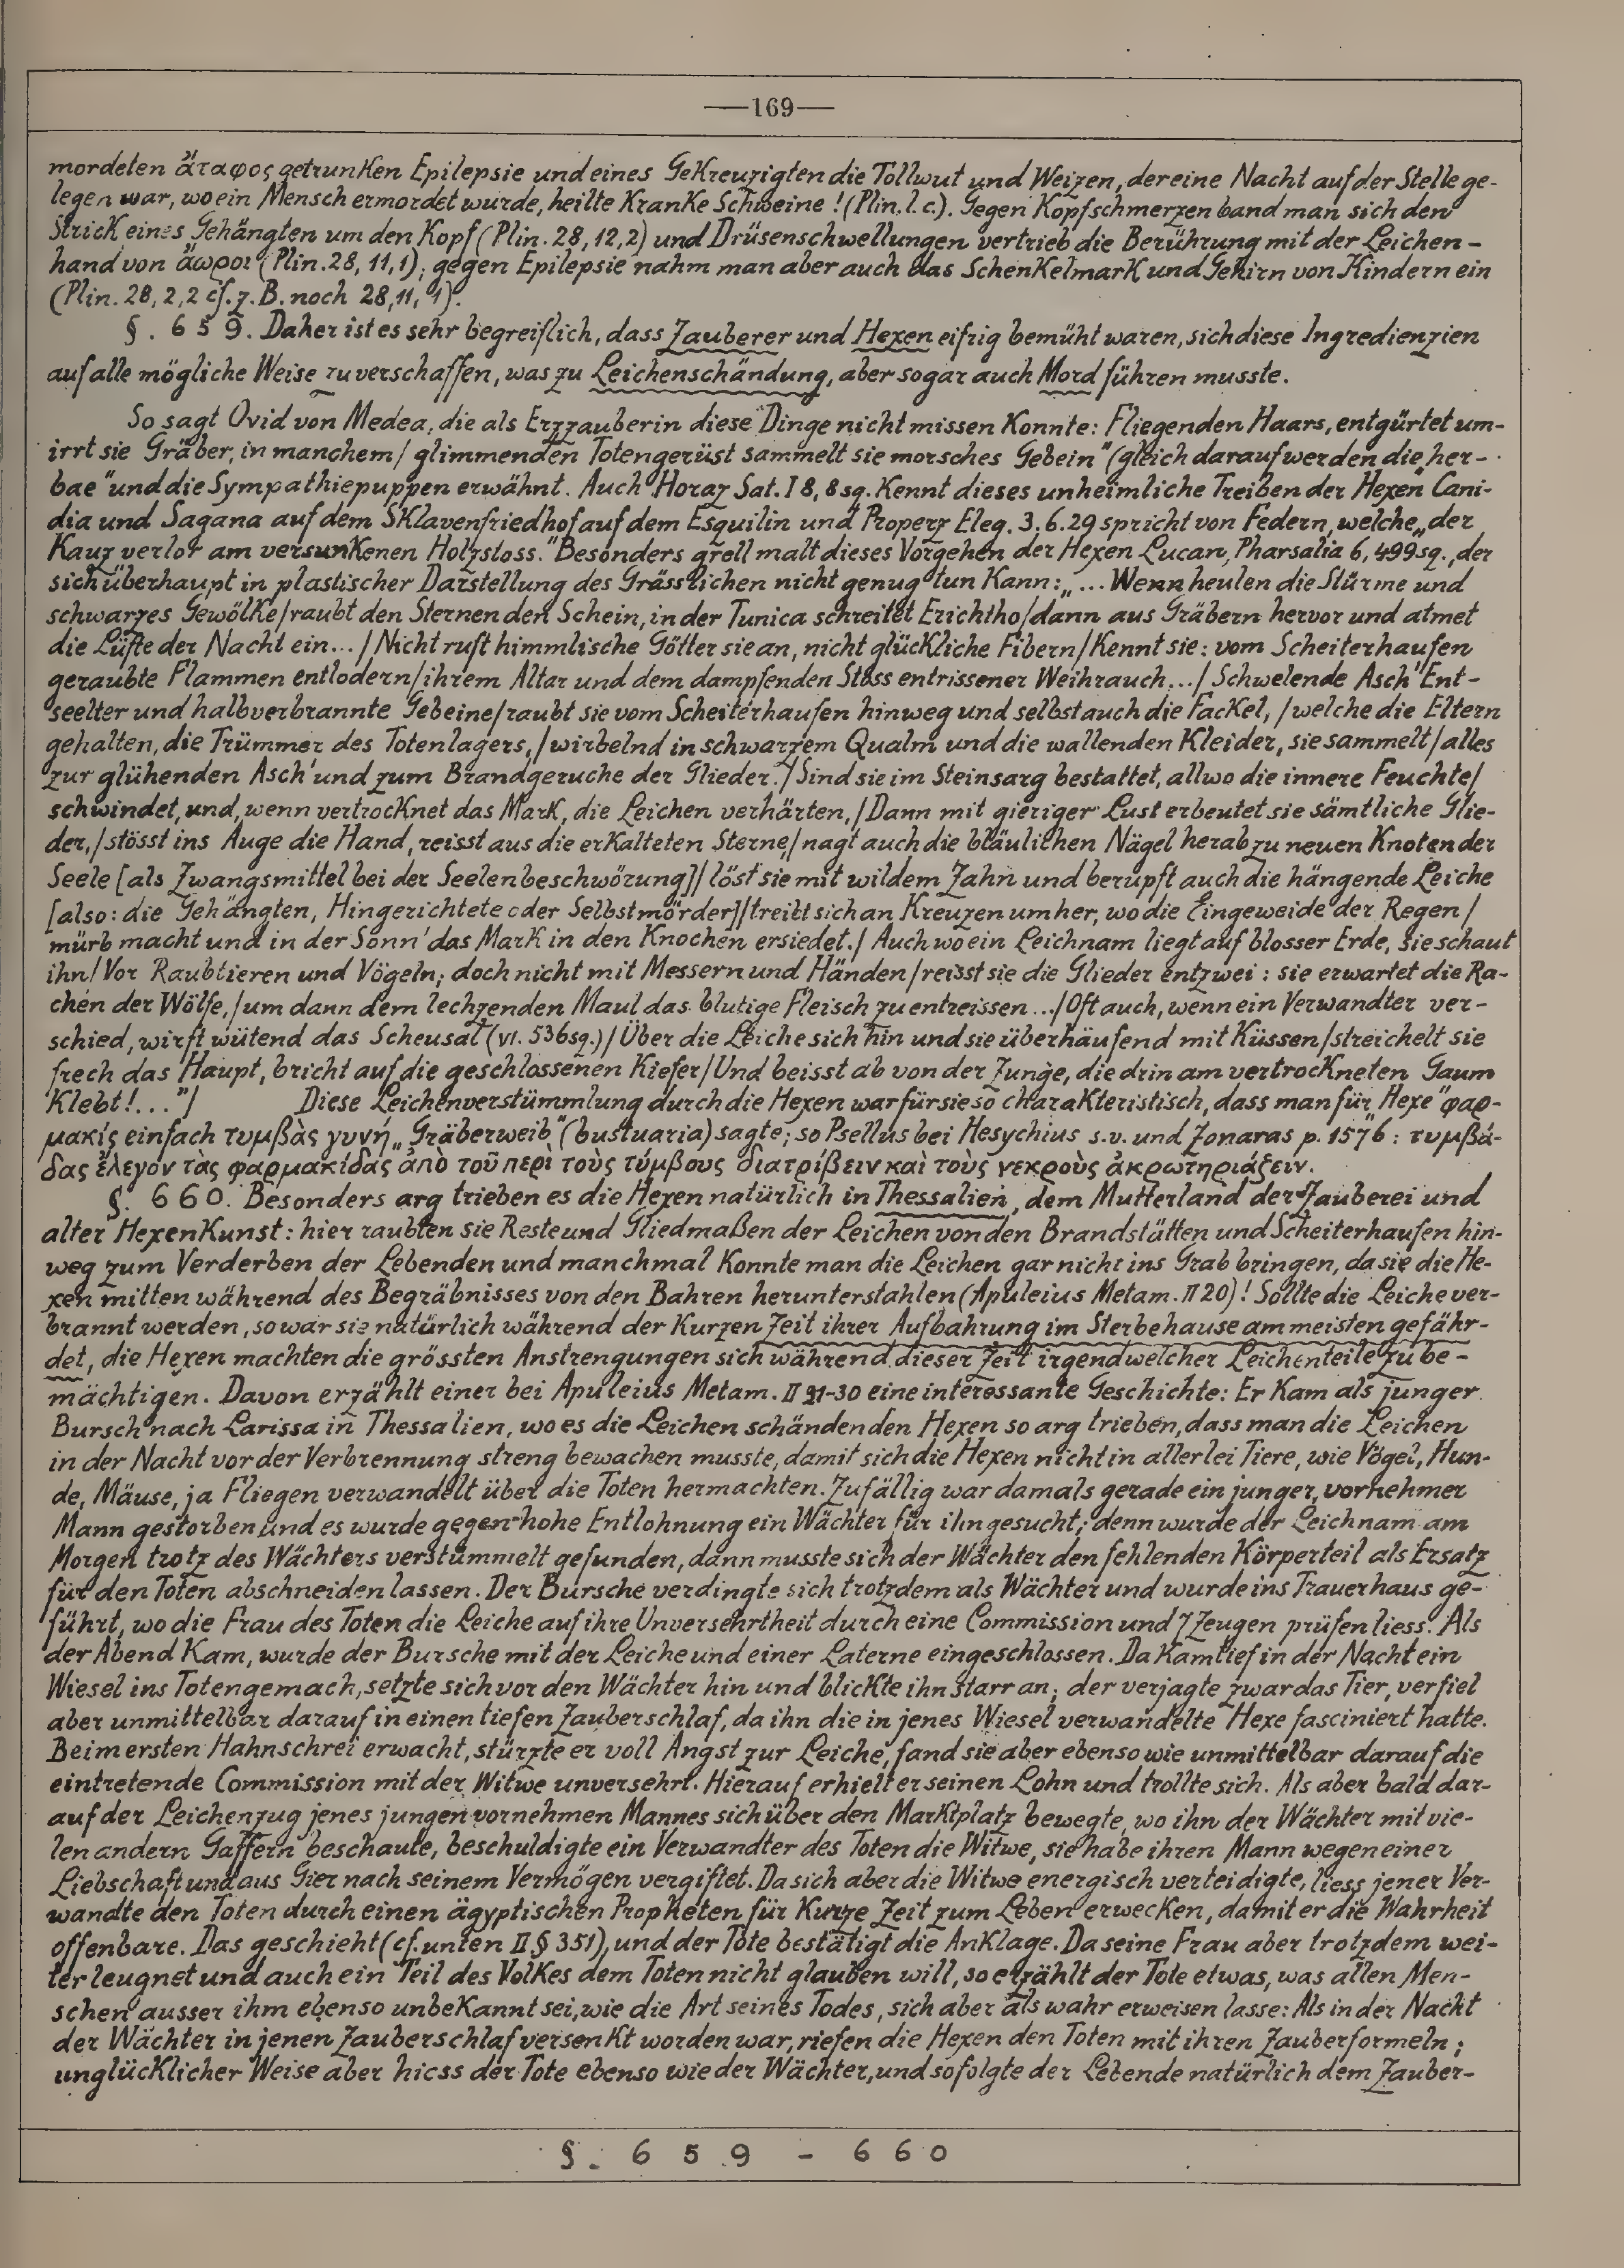 —169—
mordeten ἄταφος getrunken Epilepsie und eines Gekreuzigten die Tollwut und Weizen, der eine Nacht auf der Stelle ge-
legen war, wo ein Mensch ermordet wurde, heilte kranke Schweine ! (Plin. l. c.). Gegen Kopfschmerzen band man sich den
Strick eines Gehängten um den Kopf (Plin. 28, 12, 2) und Drüsenschwellungen vertrieb die Berührung mit der Leichen-
hand von ἄωροι (Plin. 28, 11, 1); gegen Epilepsie nahm man aber auch das Schenkelmark und Gehirn von Kindern ein
(Plin. 28, 2, 2 cf. z. B. noch 28, 11, 1).
§. 659. Daher ist es sehr begreiflich, dass Zauberer und Hexen eifrig bemüht waren, sich diese Ingredienzien
auf alle mögliche Weise zu verschaffen, was zu Leichenschändung, aber sogar auch Mord führen musste.
So sagt Ovid von Medea, die als Erzzauberin diese Dinge nicht missen konnte: „Fliegenden Haars, entgürtet um-
irrt sie Gräber, in manchem/ glimmenden Totengerüst sammelt sie morsches Gebein" (gleich darauf werden die „her-
bae" und die Sympathiepuppen erwähnt. Auch Horaz Sat. I 8, 8 sq. kennt dieses unheimliche Treiben der Hexen Cani-
dia und Sagana auf dem Sklavenfriedhof auf dem Esquilin und Properz Eleg. 3. 6. 29 spricht von Federn, welche „der
Kauz verlor am versunkenen Holzstoss." Besonders grell malt dieses Vorgehen der Hexen Lucan, Pharsalia 6, 499 sq., der
sich überhaupt in plastischer Darstellung des Grässlichen nicht genug tun kann: „... Wenn heulen die Stürme und
schwarzes Gewölke/ raubt den Sternen den Schein, in der Tunica schreitet Erichtho/ dann aus Gräbern hervor und atmet
die Lüfte der Nacht ein... / Nicht ruft himmlische Götter sie an, nicht glückliche Fibern/ kennt sie: vom Scheiterhaufen
geraubte Flammen entlodern/ ihrem Altar und dem dampfenden Stoss entrissener Weihrauch.../ Schwelende Asch' Ent-
seelter und halbverbrannte Gebeine/ raubt sie vom Scheiterhaufen hinweg und selbst auch die Fackel, / welche die Eltern
gehalten, die Trümmer des Totenlagers, / wirbelnd in schwarzem Qualm und die wallenden Kleider, sie sammelt/ alles
zur glühenden Asch' und zum Brandgeruche der Glieder./ Sind sie im Steinsarg bestattet, allwo die innere Feuchte/
schwindet, und, wenn vertrocknet das Mark, die Leichen verhärten, / Dann mit gieriger Lust erbeutet sie sämtliche Glie-
der, / stösst ins Auge die Hand, reisst aus die erkalteten Sterne/ nagt auch die bläulichen Nägel herab zu neuen Knoten der
Seele [als Zwangsmittel bei der Seelenbeschwörung]/ löst sie mit wildem Zahn und berupft auch die hängende Leiche
[also: die Gehängten, Hingerichtete oder Selbstmörder]/ treibt sich an Kreuzen umher, wo die Eingeweide der Regen /
mürb macht und in der Sonn' das Mark in den Knochen ersiedet./ Auch wo ein Leichnam liegt auf blosser Erde, sie schaut
ihn/ Vor Raubtieren und Vögeln; doch nicht mit Messern und Händen/ reisst sie die Glieder entzwei: sie erwartet die Ra-
chen der Wölfe, / um dann dem lechzenden Maul das blutige Fleisch zu entreissen .../ Oft auch, wenn ein Verwandter ver-
schied, wirft wütend das Scheusal (VI. 536 sq.)/ Über die Leiche sich hin und sie überhäufend mit Küssen/ streichelt sie
frech das Haupt, bricht auf die geschlossenen Kiefer/ Und beisst ab von der Zunge, die drin am vertrockneten Gaum
klebt!..."/ Diese Leichenverstümmlung durch die Hexen war für sie so charakteristisch, dass man für „Hexe" φαρ-
μακίς einfach τυμβὰς γυνή „Gräberweib" (bustuaria) sagte; so Psellus bei Hesychius s.v. und Zonaras p. 1576: τυμβά-
δας ἔλεγον τὰς φαρμακίδας ἀπὸ τοῦ περὶ τοὺς τύμβους διατρίβειν καὶ τοὺς νεκροὺς ἀκρωτηριάξειν.
§. 660. Besonders arg trieben es die Hexen natürlich in Thessalien, dem Mutterland der Zauberei und
alter Hexenkunst: hier raubten sie Reste und Gliedmaßen der Leichen von den Brandstätten und Scheiterhaufen hin-
weg zum Verderben der Lebenden und manchmal konnte man die Leichen gar nicht ins Grab bringen, da sie die He-
xen mitten während des Begräbnisses von den Bahren herunterstahlen (Apuleius Metam. II 20)! Sollte die Leiche ver-
brannt werden, so war sie natürlich während der kurzen Zeit ihrer Aufbahrung im Sterbehause am meisten gefähr-
det, die Hexen machten die grössten Anstrengungen sich während dieser Zeit irgendwelcher Leichenteile zu be-
mächtigen. Davon erzählt einer bei Apuleius Metam. II 21-30 eine interessante Geschichte: Er kam als junger
Bursch nach Larissa in Thessalien, wo es die Leichen schändenden Hexen so arg trieben, dass man die Leichen
in der Nacht vor der Verbrennung streng bewachen musste, damit sich die Hexen nicht in allerlei Tiere, wie Vögel, Hun-
de, Mäuse, ja Fliegen verwandelt über die Toten hermachten. Zufällig war damals gerade ein junger, vornehmer
Mann gestorben und es wurde gegen hohe Entlohnung ein Wächter für ihn gesucht; denn wurde der Leichnam am
Morgen trotz des Wächters verstümmelt gefunden, dann musste sich der Wächter den fehlenden Körperteil als Ersatz
für den Toten abschneiden lassen. Der Bursche verdingte sich trotzdem als Wächter und wurde ins Trauerhaus ge-
führt, wo die Frau des Toten die Leiche auf ihre Unversehrtheit durch eine Commission und 7 Zeugen prüfen liess. Als
der Abend kam, wurde der Bursche mit der Leiche und einer Laterne eingeschlossen. Da kam tief in der Nacht ein
Wiesel ins Totengemach, setzte sich vor den Wächter hin und blickte ihn starr an; der verjagte zwar das Tier, verfiel
aber unmittelbar darauf in einen tiefen Zauberschlaf, da ihn die in jenes Wiesel verwandelte Hexe fasciniert hatte.
Beim ersten Hahnschrei erwacht, stürzte er voll Angst zur Leiche, fand sie aber ebenso wie unmittelbar darauf die
eintretende Commission mit der Witwe unversehrt. Hierauf erhielt er seinen Lohn und trollte sich. Als aber bald dar-
auf der Leichenzug jenes jungen vornehmen Mannes sich über den Marktplatz bewegte, wo ihn der Wächter mit vie-
len andern Gaffern beschaute, beschuldigte ein Verwandter des Toten die Witwe, sie habe ihren Mann wegen einer
Liebschaft und aus Gier nach seinem Vermögen vergiftet. Da sich aber die Witwe energisch verteidigte, liess jener Ver-
wandte den Toten durch einen ägyptischen Propheten für kurze Zeit zum Leben erwecken, damit er die Wahrheit
offenbare. Das geschieht (cf. unten II § 351), und der Tote bestätigt die Anklage. Da seine Frau aber trotzdem wei-
ter leugnet und auch ein Teil des Volkes dem Toten nicht glauben will, so erzählt der Tote etwas, was allen Men-
schen ausser ihm ebenso unbekannt sei, wie die Art seines Todes, sich aber als wahr erweisen lasse: Als in der Nacht
der Wächter in jenen Zauberschlaf versenkt worden war, riefen die Hexen den Toten mit ihren Zauberformeln;
unglücklicher Weise aber hiess der Tote ebenso wie der Wächter, und so folgte der Lebende natürlich dem Zauber-
§. 659 - 660